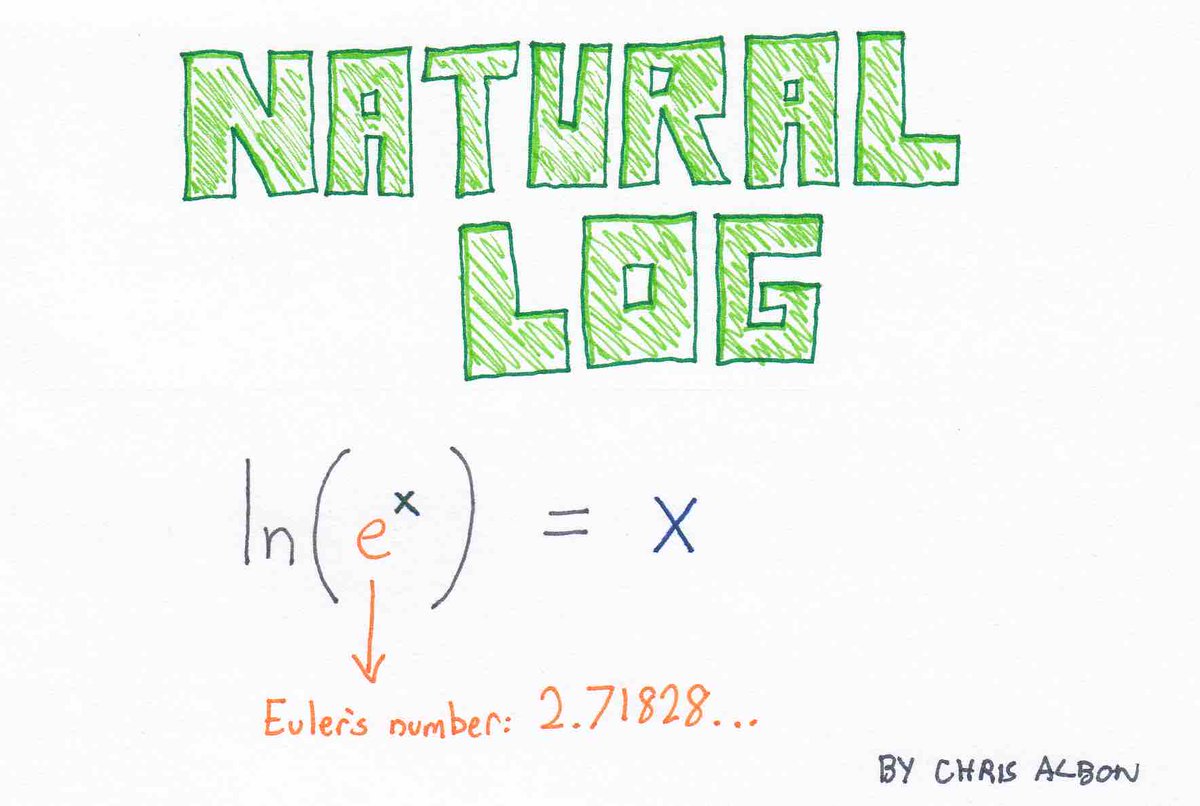 NATURAL
LOG
ln(e^x) = x
Euler's number: 2.71828...
BY CHRIS ALBON